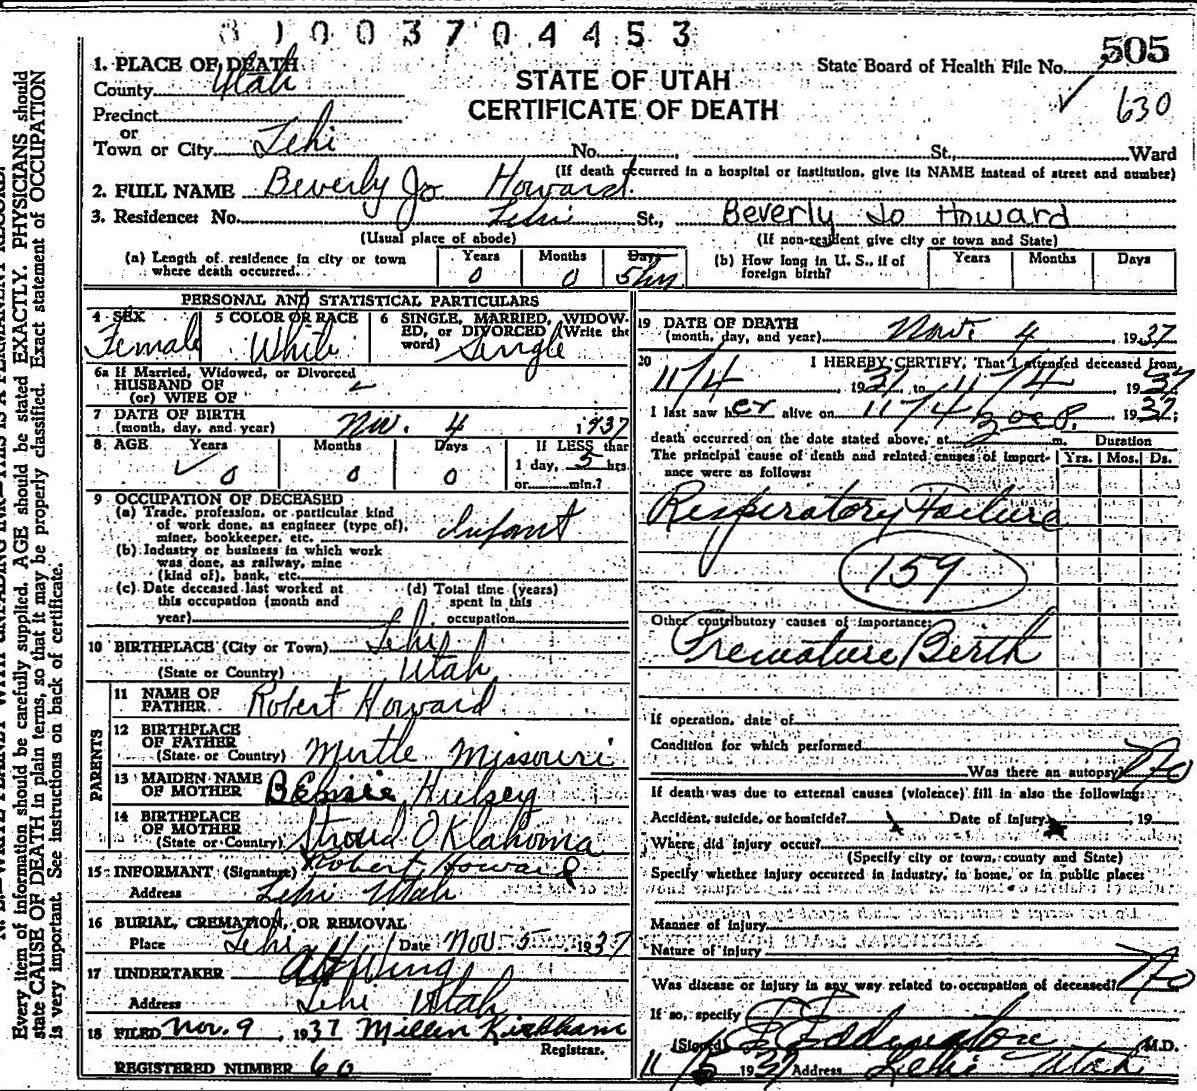 8 1 0 0 3 7 0 4 4 5 3
505
630
STATE OF UTAH
CERTIFICATE OF DEATH
State Board of Health File No.
1. PLACE OF DEATH
County Utah
Precinct
or
Town or City Lehi No. , St., Ward
(If death occurred in a hospital or institution, give its NAME instead of street and number)
2. FULL NAME Beverly Jo Howard
3. Residence: No. Lehi St., Beverly Jo Howard
(Usual place of abode) (If non-resident give city or town and State)
(a) Length of residence in city or town where death occurred. Years 0 Months 0 Days 5 hrs
(b) How long in U. S., if of foreign birth? Years Months Days
PERSONAL AND STATISTICAL PARTICULARS
4 SEX Female
5 COLOR OR RACE White
6 SINGLE, MARRIED, WIDOWED, or DIVORCED (Write the word) Single
6a If Married, Widowed, or Divorced
HUSBAND OF
(or) WIFE OF
7 DATE OF BIRTH
(month, day, and year) Nov. 4 1937
8 AGE Years 0 Months 0 Days 0 If LESS than 1 day, 5 hrs. or min.?
9 OCCUPATION OF DECEASED
(a) Trade, profession, or particular kind
of work done, as engineer (type of),
miner, bookkeeper, etc. Infant
(b) Industry or business in which work
was done, as railway, mine
(kind of), bank, etc.
(c) Date deceased last worked at
this occupation (month and
year)
(d) Total time (years)
spent in this
occupation
10 BIRTHPLACE (City or Town) Lehi
(State or Country) Utah
PARENTS
11 NAME OF FATHER Robert Howard
12 BIRTHPLACE OF FATHER
(State or Country) Mirtle Missouri
13 MAIDEN NAME OF MOTHER Hulsey
14 BIRTHPLACE OF MOTHER
(State or Country) Stroud Oklahoma
15 INFORMANT (Signature) Robert Howard
Address Lehi Utah
16 BURIAL, CREMATION, OR REMOVAL
Place Lehi Date Nov 5 1937
17 UNDERTAKER Wing
Address Lehi Utah
18 FILED Nov. 9, 1937 Kirkham
Registrar.
REGISTERED NUMBER 60
19 DATE OF DEATH
(month, day, and year) Nov. 4, 1937
20 I HEREBY CERTIFY, That I attended deceased from
11/4 1937 to 11/4 1937
I last saw her alive on 11/4 1937;
death occurred on the date stated above, at m. Duration
The principal cause of death and related causes of importance were as follows: Yrs. Mos. Ds.
Respiratory Failure
159
Other contributory causes of importance:
Premature Birth
If operation, date of
Condition for which performed
Was there an autopsy? No
If death was due to external causes (violence) fill in also the following:
Accident, suicide, or homicide? Date of injury 19
Where did injury occur?
(Specify city or town, county and State)
Specify whether injury occurred in industry, in home, or in public place:
Manner of injury
Nature of injury
Was disease or injury in any way related to occupation of deceased? No
If so, specify
(Signed) Eddington M.D.
11/5 1937 Address Lehi Utah
Every item of information should be carefully supplied. AGE should be stated EXACTLY. PHYSICIANS should
state CAUSE OF DEATH in plain terms, so that it may be properly classified. Exact statement of OCCUPATION
is very important. See instructions on back of certificate.